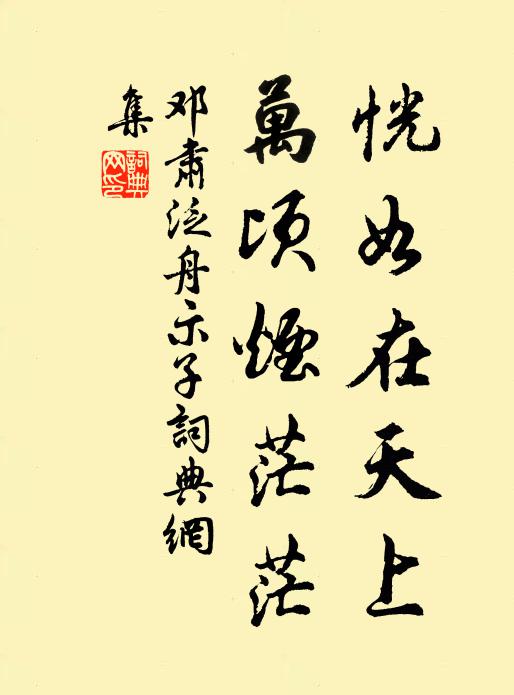 恍如在天上
萬頃煙茫茫
邓肅泛舟示子詞典網
集
詞典网印